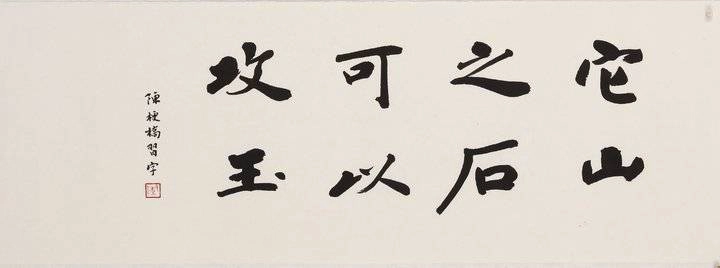 它山
之石
可以
攻玉
陳梗橋習字